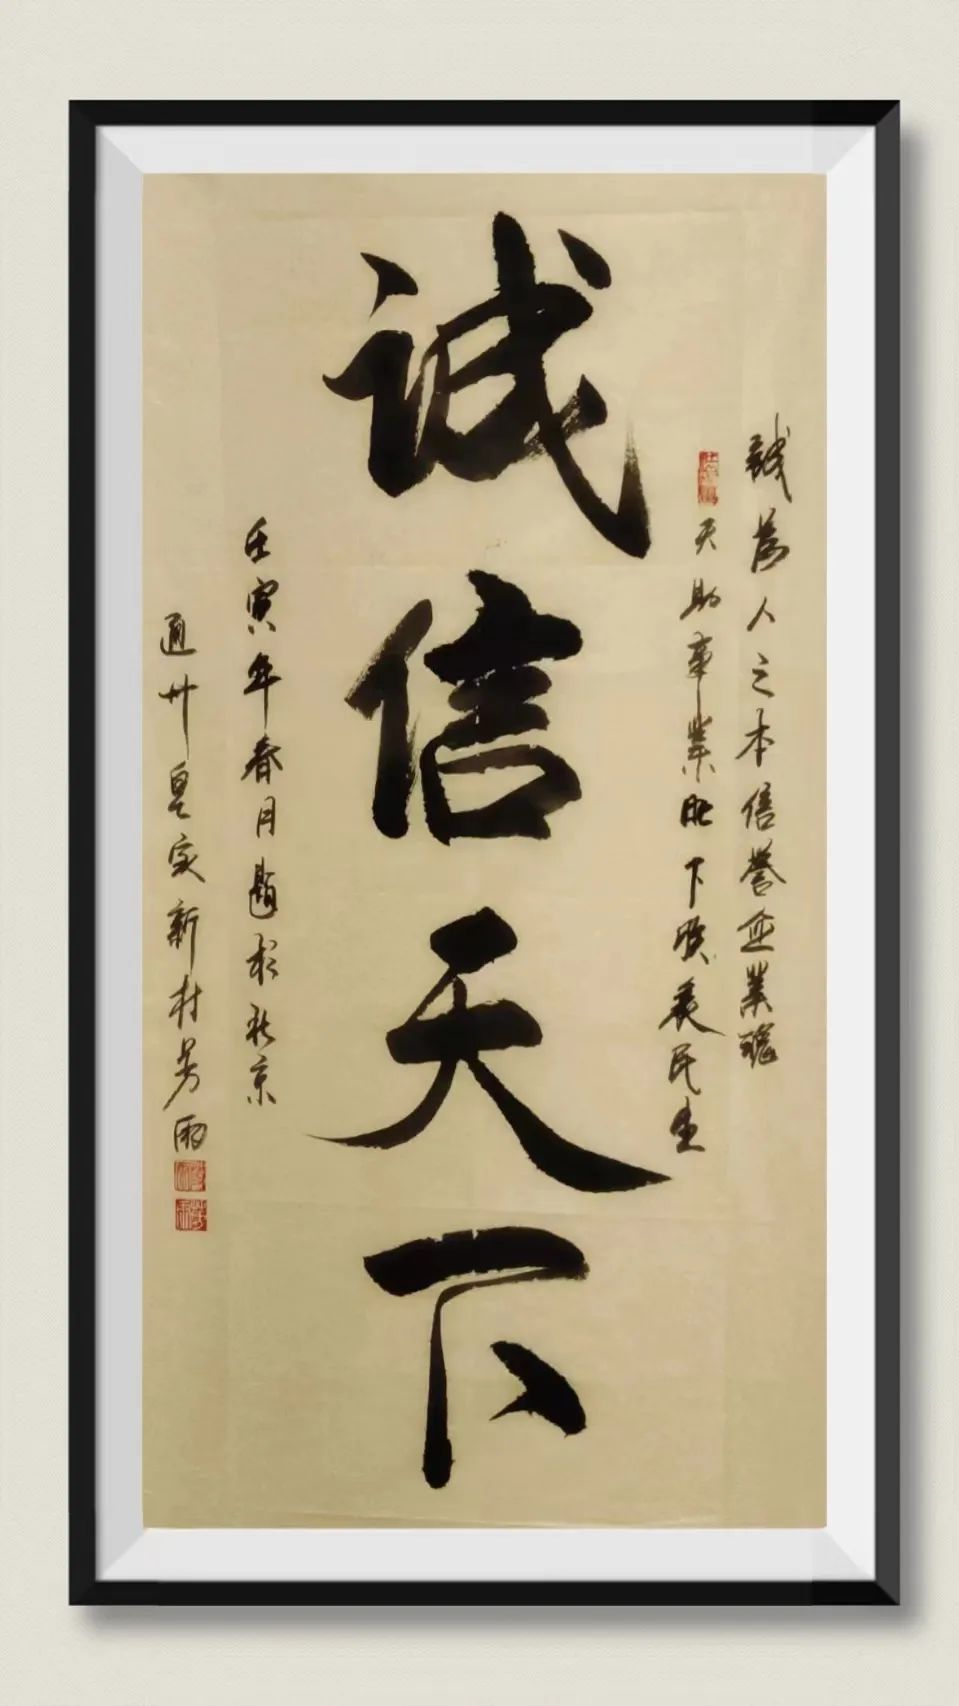 誠為人之本信譽企業魂
天助事業旺下民生
诚信天下
壬寅年春月題於北京
通州皇家新村芳雨